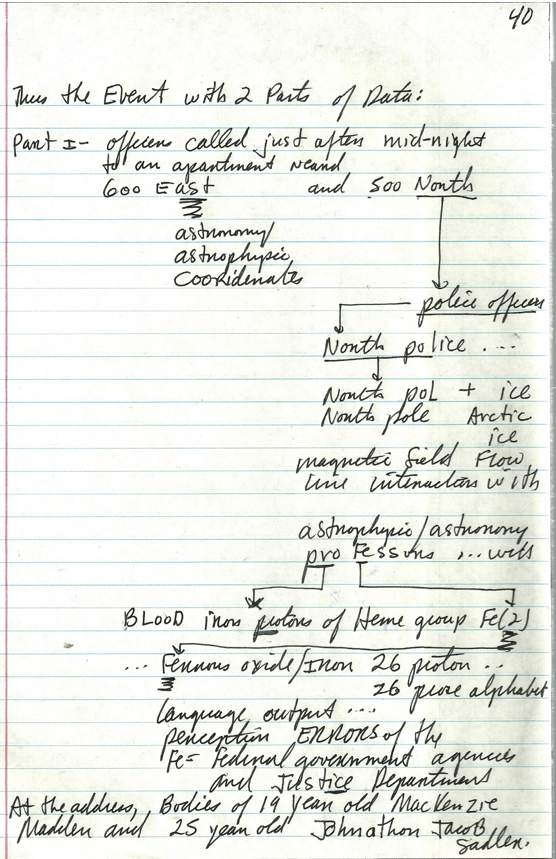 40
Thus the Event with 2 Parts of Data:
Part I- officers called just after mid-night
to an apartment neard
600 East and 500 North
astronomy/
astrophysic
Cooridenates
police officers
North police ....
North pol + ice
North pole Arctic
ice
magnetic field Flow
line interactions with
astrophysic/astronomy
pro Fessors ... with
BLOOD iron protons of Heme group Fe(2)
... Ferrous oxide/Iron 26 proton ..
26 more alphabet
language output ...
perception ERRORS of the
Fe= Federal government agencies
and Justice Department
At the address, Bodies of 19 year old Mackenzie
Madden and 25 year old Johnathon Jacob
Sadler.